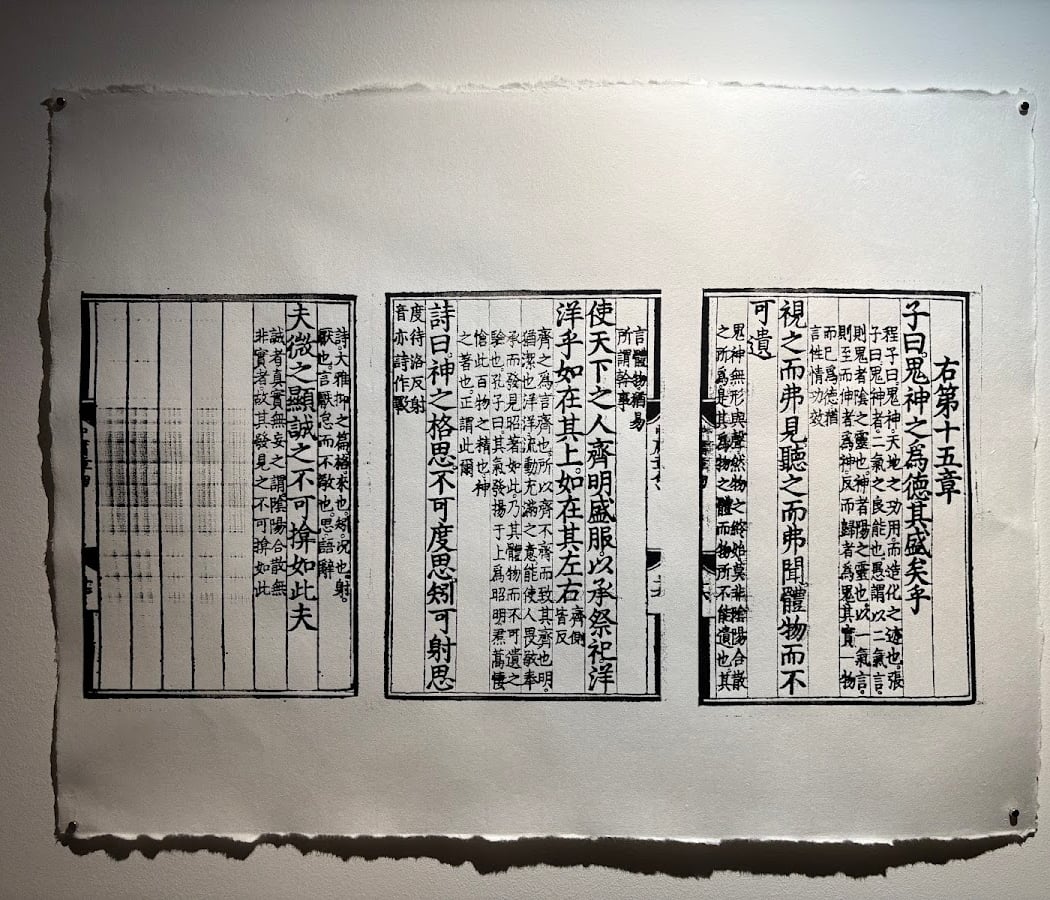 右第十五章
子曰鬼神之爲德其盛矣乎
程子曰鬼神天地之功用而造化之迹也張
子曰鬼神者二氣之良能也愚謂以二氣言
則鬼者陰之靈也神者陽之靈也以一氣言
則至而伸者爲神反而歸者爲鬼其實一物
而已爲德猶
言性情功效
視之而弗見聽之而弗聞體物而不
可遺
鬼神無形與聲然物之終始莫非陰陽合散
之所爲是其爲物之體而物所不能遺也其
言體物猶易
所謂幹事
使天下之人齊明盛服以承祭祀洋
洋乎如在其上如在其左右
齊側
皆反
齊之爲言齊也所以齊不齊而致其齊也明
猶潔也洋洋流動充滿之意能使人畏敬奉
承而發見昭著如此乃其體物而不可遺之
驗也孔子曰其氣發揚于上爲昭明焄蒿悽
愴此百物之精也神
之著也正謂此爾
詩曰神之格思不可度思矧可射思
度待洛反射
音亦詩作斁
詩大雅抑之篇格來也矧況也射
厭也言厭怠而不敬也思語辭
夫微之顯誠之不可揜如此夫
誠者真實無妄之謂陰陽合散無
非實者故其發見之不可揜如此